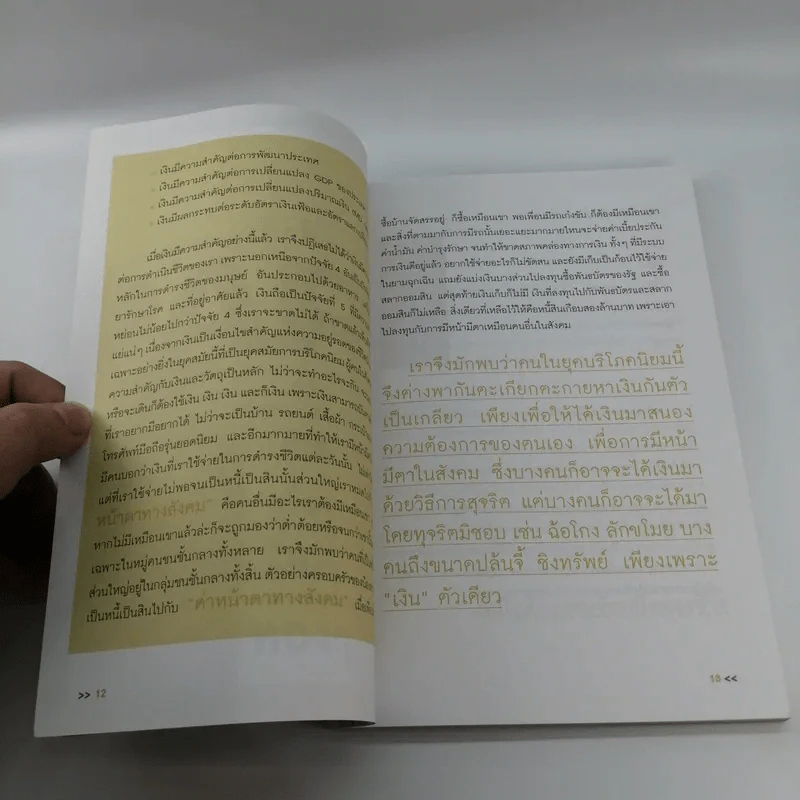 เงินมีความสำคัญต่อการพัฒนาประเทศ
เงินมีความสำคัญต่อการเปลี่ยนแปลง GDP ของประเทศ
เงินมีความสำคัญต่อการเปลี่ยนแปลงปริมาณเงิน
เงินมีผลกระทบต่อระดับอัตราเงินเฟ้อและอัตรา
เมื่อเงินมีความสำคัญอย่างนี้แล้ว เราจึงปฏิเสธไม่ได้ว่าเงินมี
ต่อการดำเนินชีวิตของเรา เพราะนอกเหนือจากปัจจัย 4 อันเป็น
หลักในการดำรงชีวิตของมนุษย์ อันประกอบไปด้วยอาหาร
ยารักษาโรค และที่อยู่อาศัยแล้ว เงินถือเป็นปัจจัยที่ 5 ที่มีความ
หย่อนไม่น้อยไปกว่าปัจจัย 4 ซึ่งเราจะขาดไม่ได้ ถ้าขาดแล้ว
แย่แน่ๆ เนื่องจากเงินเป็นเงื่อนไขสำคัญแห่งความอยู่รอดของชีวิต
เฉพาะอย่างยิ่งในยุคสมัยนี้ที่เป็นยุคสมัยการบริโภคนิยม
ความสำคัญกับเงินและวัตถุเป็นหลัก ไม่ว่าจะทำอะไรจะกิน
หรือจะเดินก็ต้องใช้เงิน เงิน เงิน และก็เงิน เพราะเงินสามารถ
ที่เราอยากมีอยากได้ ไม่ว่าจะเป็นบ้าน รถยนต์ เสื้อผ้า
โทรศัพท์มือถือรุ่นยอดนิยม และอีกมากมายที่ทำให้เรามีหน้ามี
มีคนบอกว่าเงินที่เราใช้จ่ายในการดำรงชีวิตแต่ละวันนั้น
แต่ที่เราใช้จ่ายไม่พอจนเป็นหนี้เป็นสินนั้นส่วนใหญ่เราหมด
หน้าตาทางสังคม" คือคนอื่นมีอะไรเราต้องมีเหมือนเขา
หากไม่มีเหมือนเขาแล้วล่ะก็จะถูกมองว่าต่ำต้อยหรือจนกว่าเขา
เฉพาะในหมู่คนชนชั้นกลางทั้งหลาย เราจึงมักพบว่าคนที่เป็น
ส่วนใหญ่อยู่ในกลุ่มชนชั้นกลางทั้งสิ้น ตัวอย่างครอบครัวของ
เป็นหนี้เป็นสินไปกับ "ค่าหน้าตาทางสังคม"
>> 12
ซื้อบ้านจัดสรรอยู่ ก็ซื้อเหมือนเขา พอเพื่อนมีรถเก๋งขับ ก็ต้องมีเหมือนเขา
และสิ่งที่ตามมากับการมีรถนั้นเยอะแยะมากมายไหนจะจ่ายค่าเบี้ยประกัน
ค่าน้ำมัน ค่าบำรุงรักษา จนทำให้ขาดสภาพคล่องทางการเงิน ทั้งๆ ที่มีระบบ
การเงินดีอยู่แล้ว อยากใช้จ่ายอะไรก็ไม่ขัดสน และยังมีเก็บเป็นก้อนไว้ใช้จ่าย
ในยามฉุกเฉิน แถมยังแบ่งเงินบางส่วนไปลงทุนซื้อพันธบัตรของรัฐ และซื้อ
สลากออมสิน แต่สุดท้ายเงินเก็บก็ไม่มี เงินที่ลงทุนไปกับพันธบัตรและสลาก
ออมสินก็ไม่เหลือ สิ่งเดียวที่เหลือไว้ให้คือหนี้สินเกือบสองล้านบาท เพราะเอา
ไปลงทุนกับการมีหน้ามีตาเหมือนคนอื่นในสังคม
เราจึงมักพบว่าคนในยุคบริโภคนิยมนี้
จึงต่างพากันตะเกียกตะกายหาเงินกันตัว
เป็นเกลียว เพียงเพื่อให้ได้เงินมาสนอง
ความต้องการของตนเอง เพื่อการมีหน้า
มีตาในสังคม ซึ่งบางคนก็อาจจะได้เงินมา
ด้วยวิธีการสุจริต แต่บางคนก็อาจจะได้มา
โดยทุจริตมิชอบ เช่น ฉ้อโกง ลักขโมย บาง
คนถึงขนาดปล้นจี้ ชิงทรัพย์ เพียงเพราะ
"เงิน" ตัวเดียว
13 <<